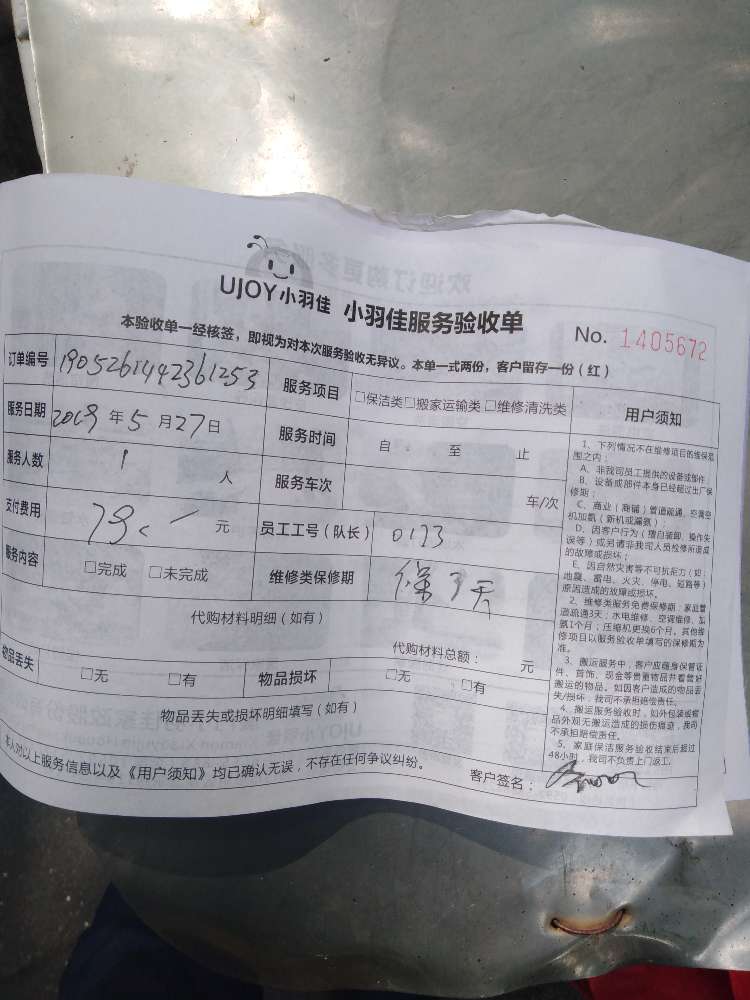 UJOY小羽佳 小羽佳服务验收单
No. 1405672
本验收单一经核签，即视为对本次服务验收无异议。本单一式两份，客户留存一份（红）
订单编号 1905261442361253 服务项目 □保洁类□搬家运输类□维修清洗类
服务日期 2019年5月27日 服务时间 自 至 止
服务人数 1 人 服务车次 车/次
支付费用 元 员工工号（队长） 0173
服务内容 □完成 □未完成 维修类保修期 保3天
代购材料明细（如有）
代购材料总额： 元
物品丢失 □无 □有 物品损坏 □无 □有
物品丢失或损坏明细填写（如有）
本人对以上服务信息以及《用户须知》均已确认无误，不存在任何争议纠纷。
客户签名：
用户须知
1、下列情况不在维修项目的维保范
围之内：
A、非我司员工提供的设备或部件；
B、设备或部件本身已经超过出厂保
修期；
C、商业（商铺）管道疏通、空调空
机加氨（新机或漏氨）；
D、因客户行为（擅自装卸、操作失
误等）或另请非我司人员检修所造成
的故障或损坏；
E、因自然灾害等不可抗拒力（如：
地震、雷电、火灾、停电、短路等）
原因造成的故障或损坏。
2、维修类服务免费保修期：家庭管
道疏通3天；水电维修、空调维修、加
氨1个月；压缩机更换6个月，其他维
修项目以服务验收单填写的保修期为
准。
3、搬运服务中，客户应随身保管证
件、首饰、现金等贵重物品并看管好
搬运的物品。如因客户造成的物品丢
失/损坏，我司不承担赔偿责任。
4、搬运服务验收时，如外包装或物
品外观无搬运造成的损伤痕迹，我司
不承担赔偿责任。
5、家庭保洁服务验收结束后超过
48小时，我司不负责上门返工。